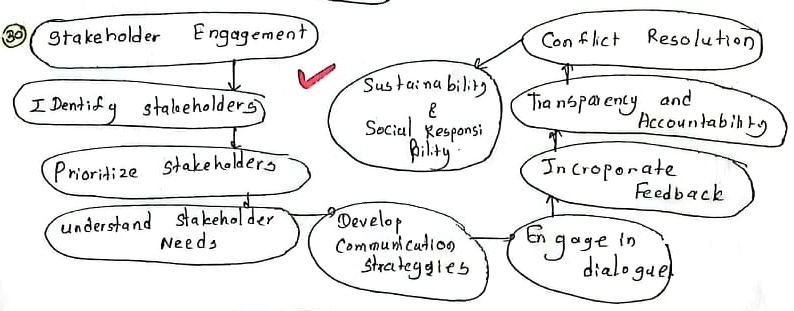 30
Stakeholder Engagement
IDentify stakeholders
Prioritize stakeholders
understand stakeholder
Needs
Develop
Communication
strateggies
Engage in
dialogue
Incroporate
Feedback
Transparency and
Accountability
Conflict Resolution
Sustainability
&
Social Responsi
bility.